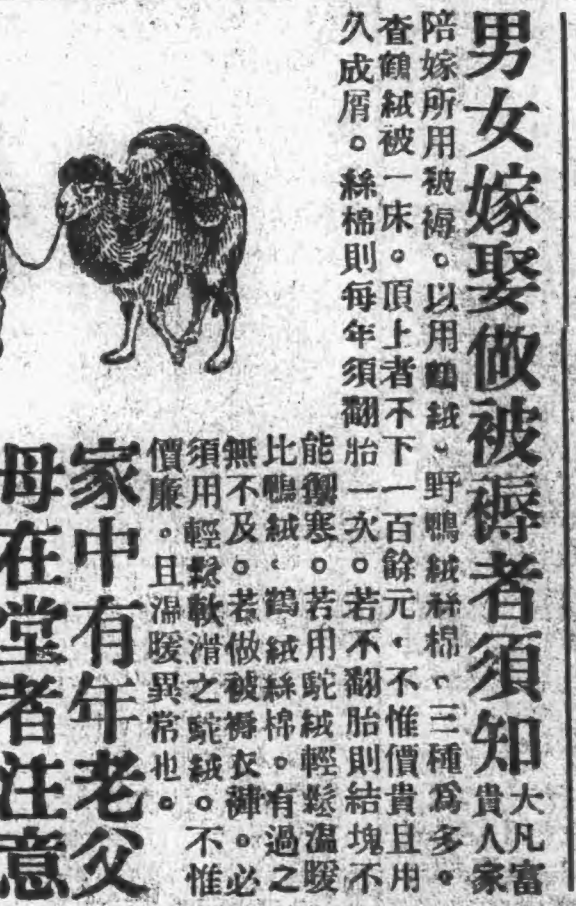 男女嫁娶做被褥者須知
大凡富
貴人家
陪嫁所用被褥。以用鶴絨、野鴨絨絲棉、三種爲多。
查鶴絨被一床。頂上者不下一百餘元、不惟價貴且用
久成屑。絲棉則每年須翻胎一次。若不翻胎則結塊不
能禦寒。若用駝絨輕鬆溫暖
比鴨絨、鶴絨絲棉。有過之
無不及。若做被褥衣褲。必
須用輕鬆軟滑之駝絨。不惟
價廉。且溫暖異常也。
家中有年老父
母在堂者注意